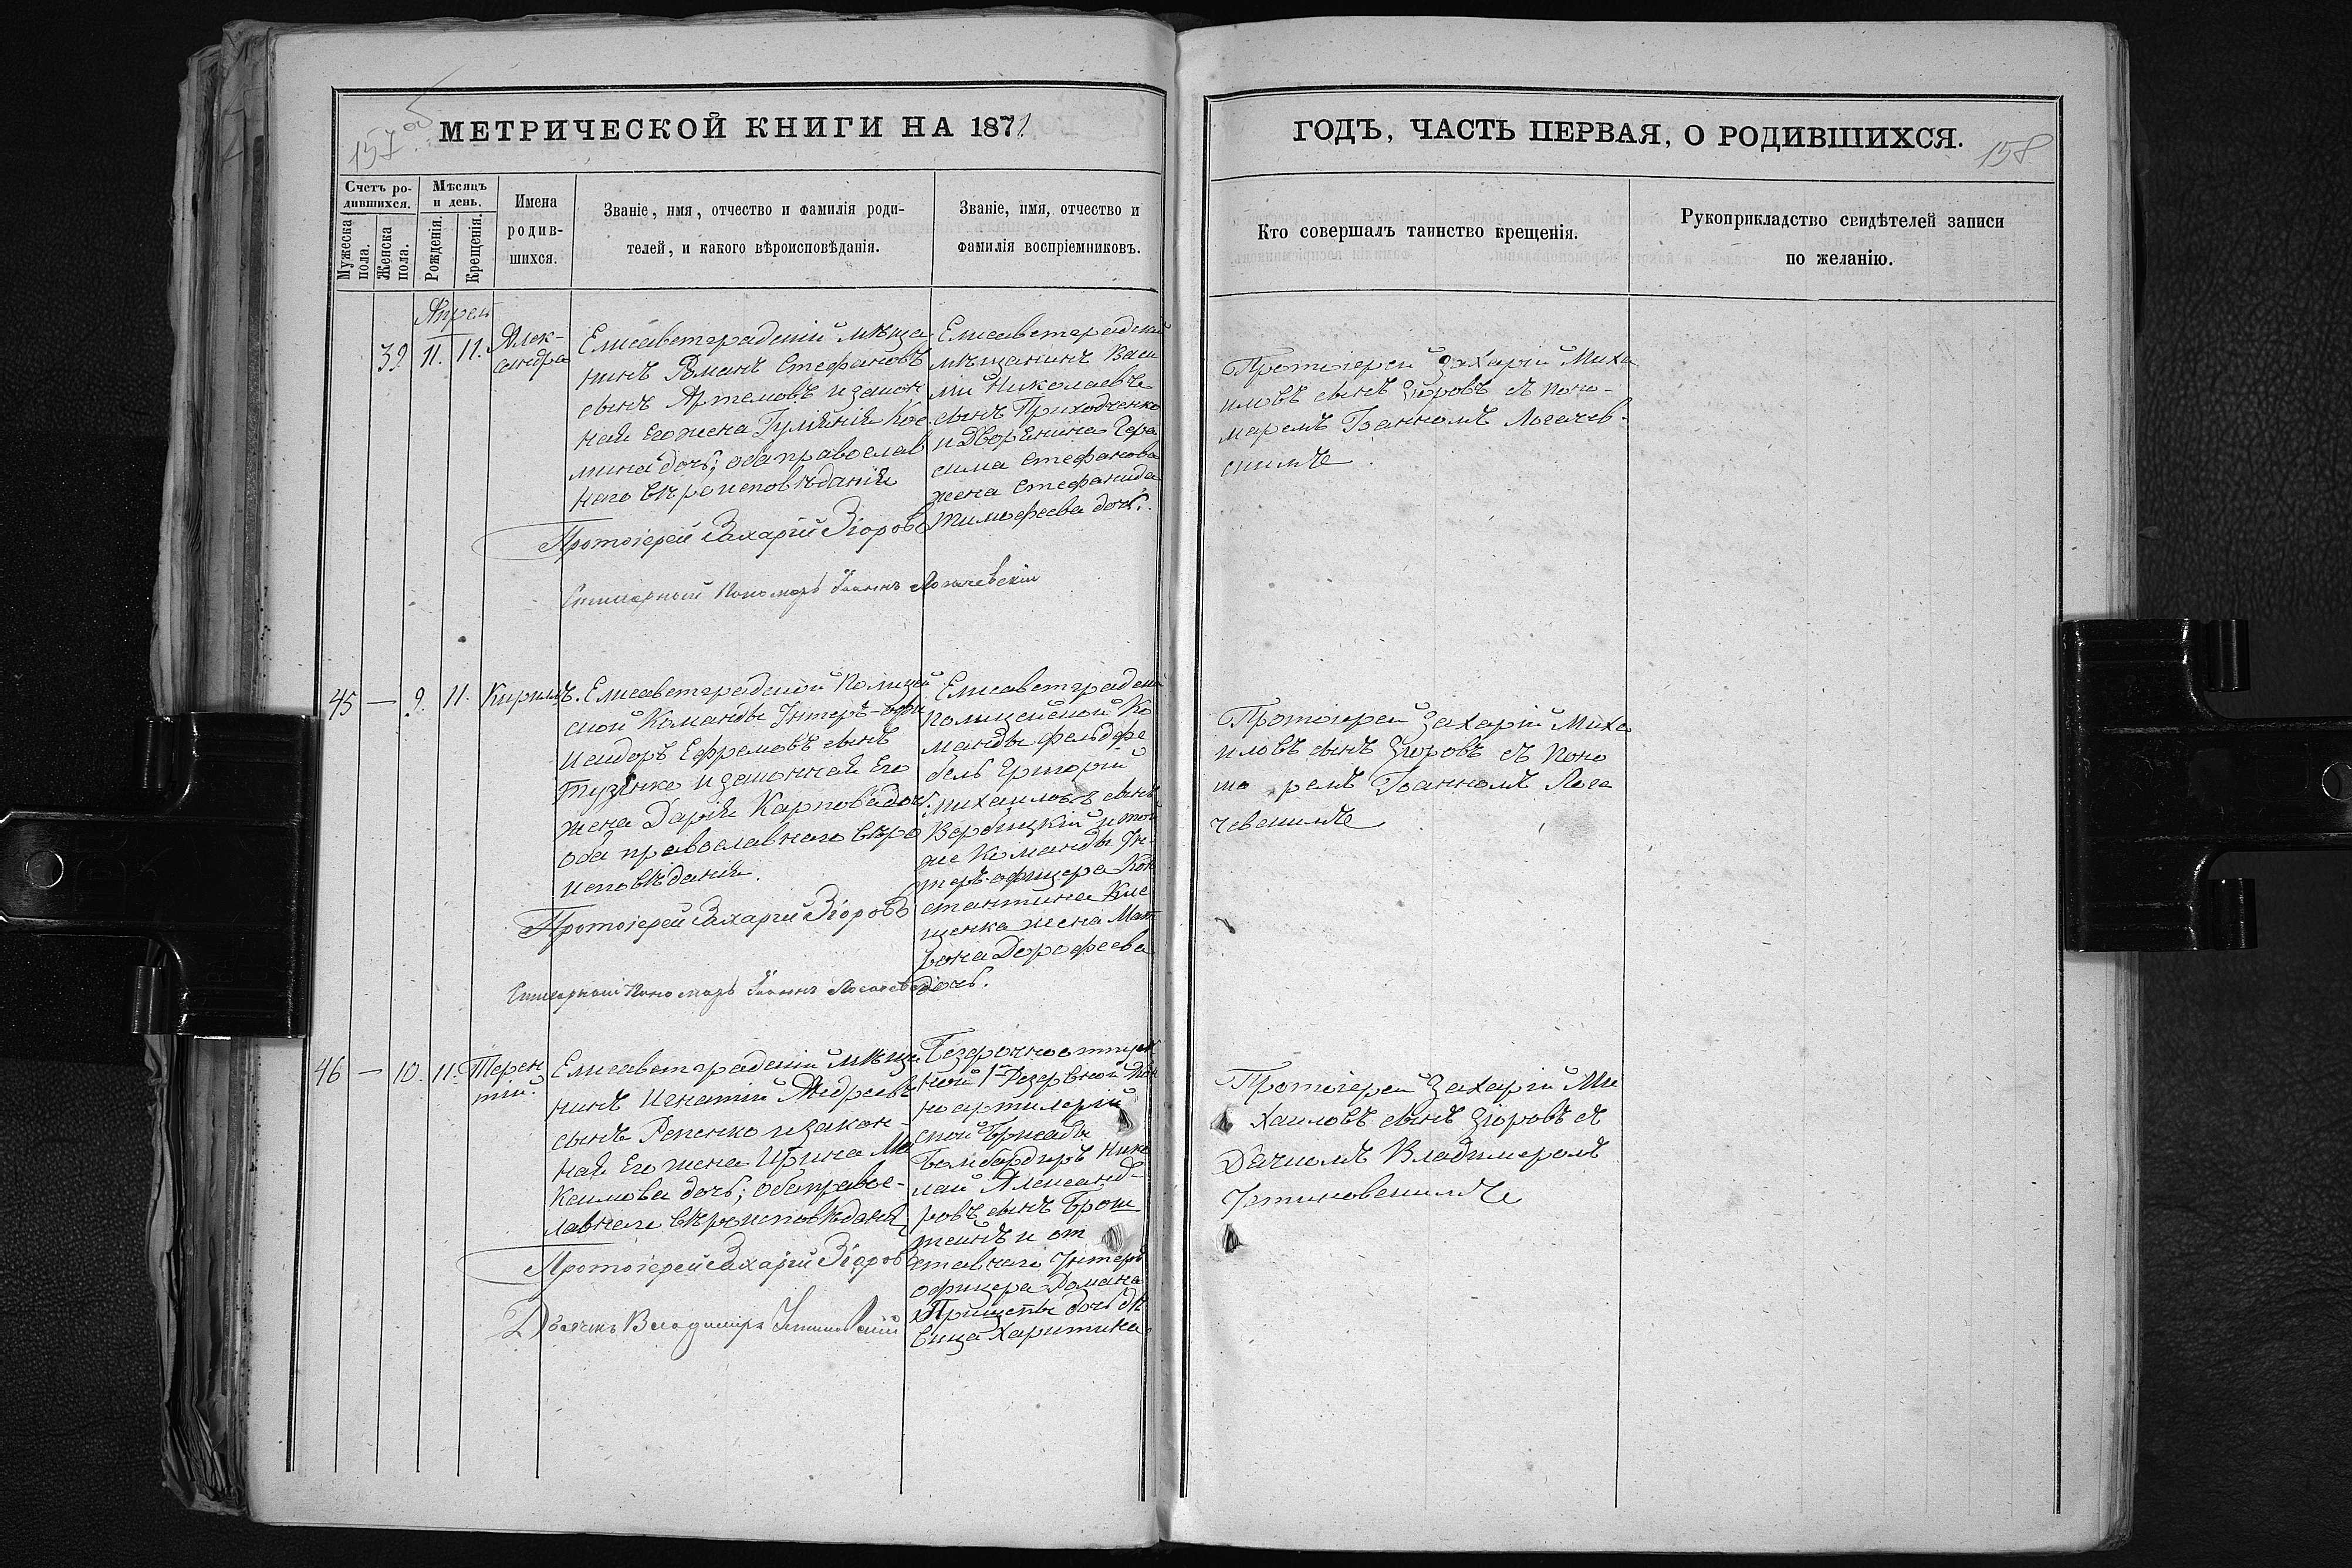 157 об
МЕТРИЧЕСКОЙ КНИГИ НА 1871
Счетъ ро-
дившихся.
Мужеска
пола.
Женска
пола.
Мѣсяцъ
и день.
Рожденія.
Крещенія.
Имена
родив-
шихся.
Званіе, имя, отчество и фамилія роди-
телей, и какого вѣроисповѣданія.
Званіе, имя, отчество и
фамилія воспріемниковъ.
Апрель
39. 11. 11.
Алек-
сандра
Елисаветградскій мѣща
нинъ Романъ Стефановъ
сынъ Артемовъ и закон
ная его жена Гулянія Кос
мина дочь; оба православ
наго вѣроисповѣданія
Протоіерей Захарій Зіоровъ
Пономарь Іоаннъ Логачевскій
Елисаветградскій
мѣщанинъ Васи
лій Николаевъ
сынъ Приходченко
и дворянина Гера
сима Стефанова
жена Стефанида
Тимофеева дочь.
45 — 9. 11. Кирилъ.
Елисаветградской Полицей
ской Команды Унтеръ-офи
Исидоръ Ефремовъ сынъ
Тузенко и законная его
жена Дарія Карпова дочь;
оба православнаго вѣро
исповѣданія.
Протоіерей Захарій Зіоровъ
Пономарь Іоаннъ
Елисаветградской
полицейской Ко
манды фельдфе
бель Григорій
Михаиловъ сынъ
Вербицкій и той
же Команды Ун-
теръ-офицера Кон
стантина Кле
щенка жена Мат
рона Дорофеева
дочь.
46 — 10. 11.
Терен
тій.
Елисаветградскій мѣща
нинъ Игнатій Андреевъ
сынъ Репенко и закон-
ная его жена Ирина Ма
ксимова дочь; оба право-
славнаго вѣроисповѣданія
Протоіерей Захарій Зіоровъ
Дьячекъ Владиміръ Устиновскій
Безсрочноотпуск
ной 1й Резервной Кон
но артилерій
ской Бригады
Бомбардиръ Нико
лай Александ-
ровъ сынъ Брош
тейнъ и от
ставнаго Унтеръ
офицера Романа
Прищепы дочь дѣ
вица Харитина
ГОДЪ, ЧАСТЬ ПЕРВАЯ, О РОДИВШИХСЯ.
158
Кто совершалъ таинство крещенія.
Рукоприкладство свидѣтелей записи
по желанію.
Протоіерей Захарій Миха
иловъ сынъ Зіоровъ съ поно-
маремъ Іоанномъ Логачев-
скимъ
Протоіерей Захарій Миха
иловъ сынъ Зіоровъ съ поно
ма ремъ Іоанномъ Лога
чевскимъ
Протоіерей Захарій Ми
хаиловъ сынъ Зіоровъ съ
Дячкомъ Владимеромъ
Устиновскимъ